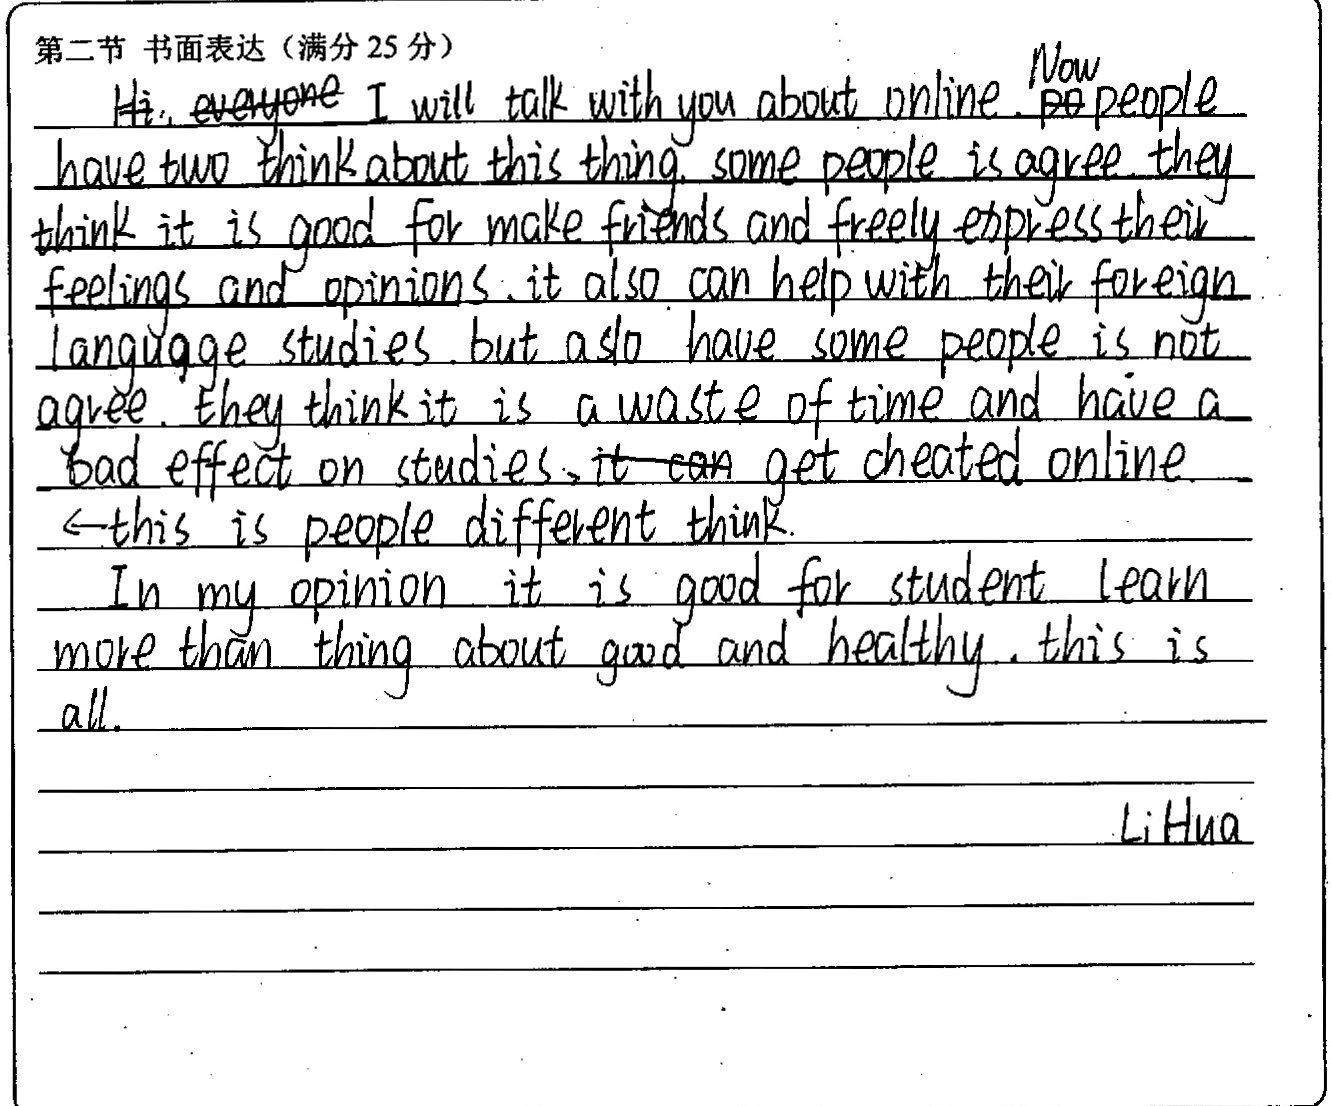 第二节 书面表达（满分 25 分）
Hi, everyone I will talk with you about online. Now people
have two think about this thing. some people is agree. they
think it is good for make friends and freely express their
feelings and opinions. it also can help with their foreign
langugge studies. but aslo have some people is not
agree. they think it is a waste of time and have a
bad effect on studies, it can get cheated online.
←this is people different think.
In my opinion it is good for student learn
more than thing about good and healthy. this is
all.
Li Hua